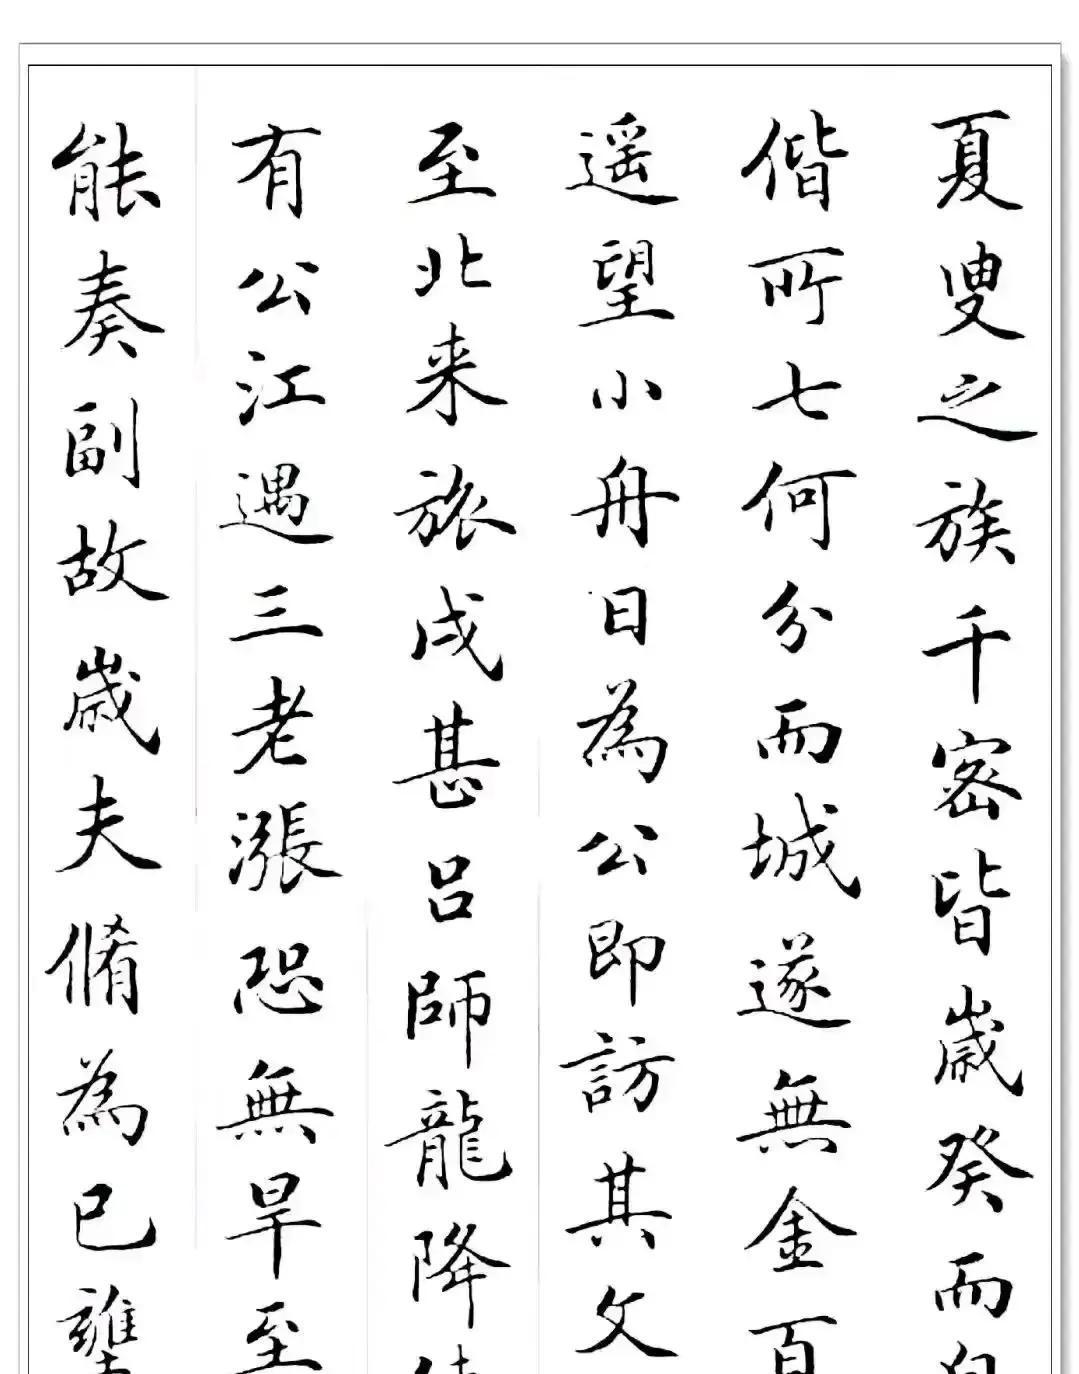 夏叟之族千密皆歲癸而
偕所七何分而城遂無金百
遥望小舟日為公即訪其文
至北来旅戌甚吕師龍降
有公江遇三老漲恐無旱至
能奏副故歲夫脩為已